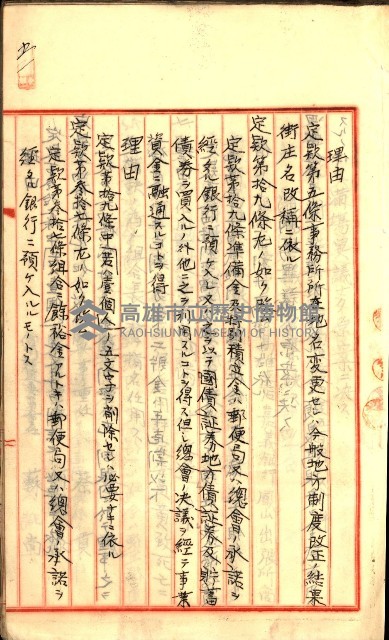 理由
定款第五條事務所所在地名變更セシハ今般地方制度改正ノ結果
街庄名改稱ニ依ル
定款第拾九條左ノ如ク改
定款第拾九條準備金及特別積立金ハ郵便局又ハ總會ノ承諾ヲ
經タル銀行ニ預ケ入レ又ハ之ヲ以テ國債證券地方債證券及貯蓄
債券ヲ買入ルノ外他ニ之ヲ利用スルコトヲ得ス但シ總會ノ決議ヲ經テ事業
資金ニ融通スルコトヲ得
理由
定款第拾九條中
個人ノ五文字ヲ削除セシハ必要ナキニ依ル
定款第參拾七條左ノ如ク
定款第參拾七條組合ニ餘裕金アルトキハ郵便局又ハ總會ノ承諾ヲ
經タル銀行ニ預ケ入ルルモノトス
高雄市立歷史博物館
KAOHSIUNG MUSEUM OF HISTORY